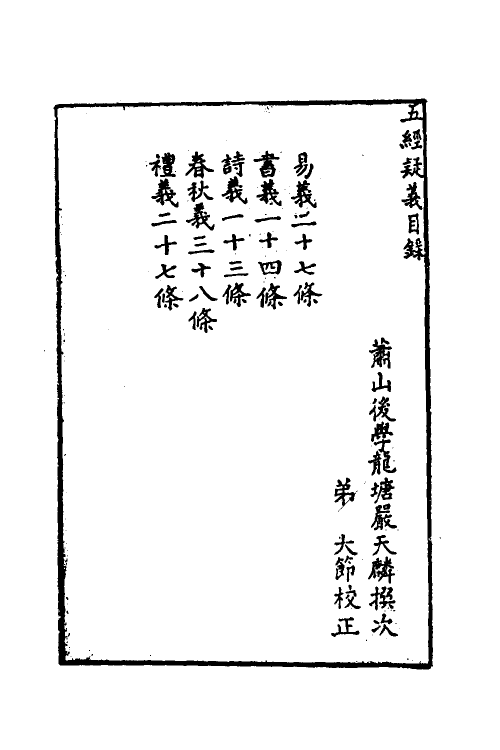 五經疑義目錄
蕭山後學龍塘嚴天麟撰次
弟　大節校正
易義二十七條
書義一十四條
詩義一十三條
春秋義三十八條
禮義二十七條